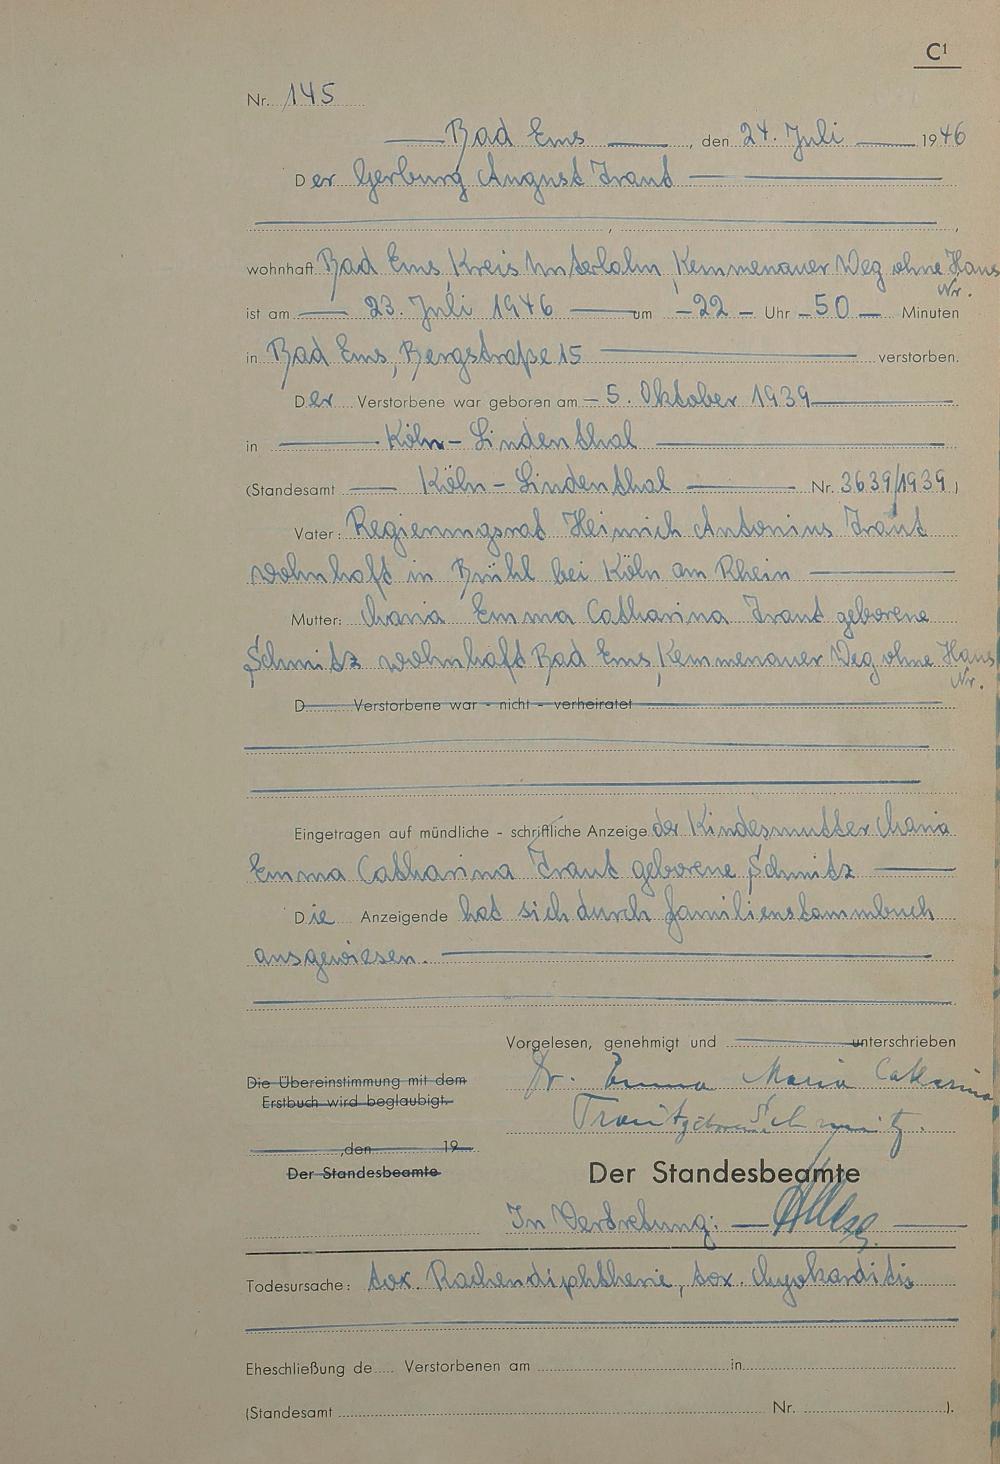 C¹
Nr. 145
Bad Ems, den 24. Juli 1946
Der Gerburg August Traut
wohnhaft Bad Ems, Kreis Unterlahn, Kemmenauer Weg ohne Haus
Nr.
ist am 23. Juli 1946 um - 22 - Uhr - 50 - Minuten
in Bad Ems, Bergstraße 15 verstorben.
Der Verstorbene war geboren am - 5. Oktober 1939
in Köln-Lindenthal
(Standesamt Köln-Lindenthal Nr. 3639/1939)
Vater: Regierungsrat Heinrich Antonius Traut
wohnhaft in Brühl bei Köln am Rhein
Mutter: Maria Emma Catharina Traut geborene
Schmitz wohnhaft Bad Ems, Kemmenauer Weg ohne Haus
Nr.
D Verstorbene war - nicht - verheiratet
Eingetragen auf mündliche - schriftliche Anzeige der Kindesmutter Maria
Emma Catharina Traut geborene Schmitz
Die Anzeigende hat sich durch Familienstammbuch
ausgewiesen.
Vorgelesen, genehmigt und unterschrieben
Die Übereinstimmung mit dem
Erstbuch wird beglaubigt.
Fr. Emma Maria Catharina
Traut geborene Schmitz.
, den 19
Der Standesbeamte
Der Standesbeamte
In Vertretung:
Todesursache: tox. Rachendiphtherie, tox. Myokarditis
Eheschließung de Verstorbenen am in
(Standesamt Nr. ).